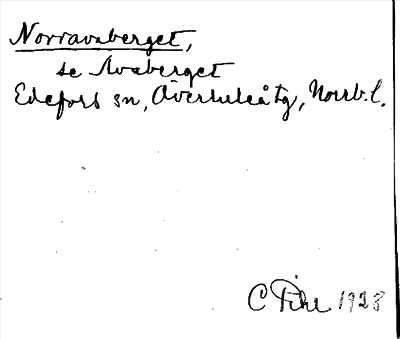 Norravaberget,
se Avaberget
Edefors sn, Överluleå tg, Norrb.l.
C Pihl 1928